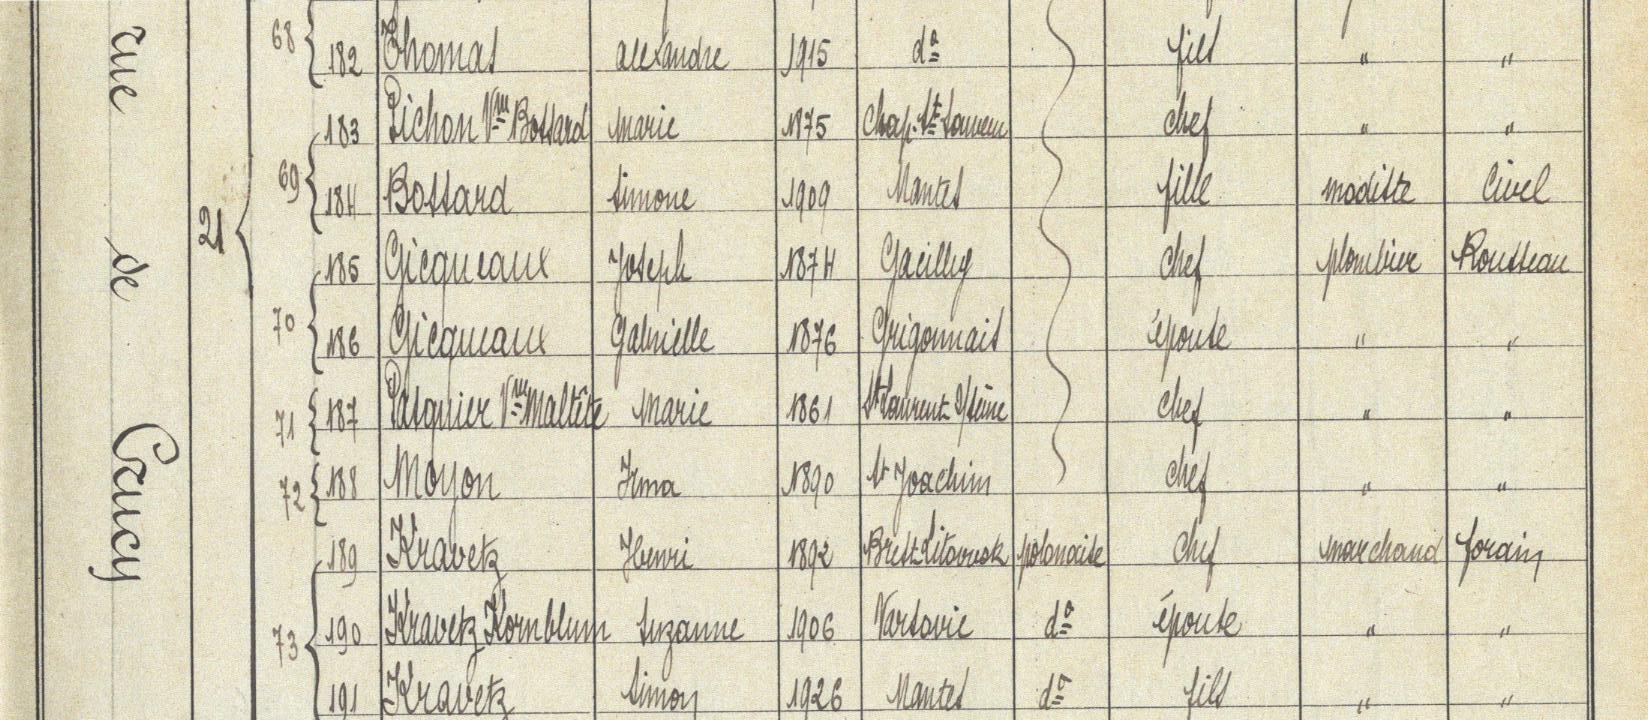 rue de Crucy
21
68 182 Thomas alexandre 1915 dº fils " "
183 Pichon Vve Bossard marie 1875 Chap. St Sauveur chef " "
69 184 Bossard Simone 1909 Nantes fille modiste Civel
185 Gicqueaux Joseph 1874 Gacilly chef plombier Rousseau
70 186 Gicqueaux Gabrielle 1876 Grigonnais épouse " "
71 187 Pasquier Vve Maltête Marie 1861 St Laurent s/sèvre chef " "
72 188 Moyon Irma 1890 St Joachim chef " "
189 Kravetz Henri 1892 Brest Litowsk polonaise chef marchand forain
73 190 Kravetz Kornblum Suzanne 1906 Varsovie dº épouse " "
191 Kravetz Simon 1926 Nantes dº fils " "